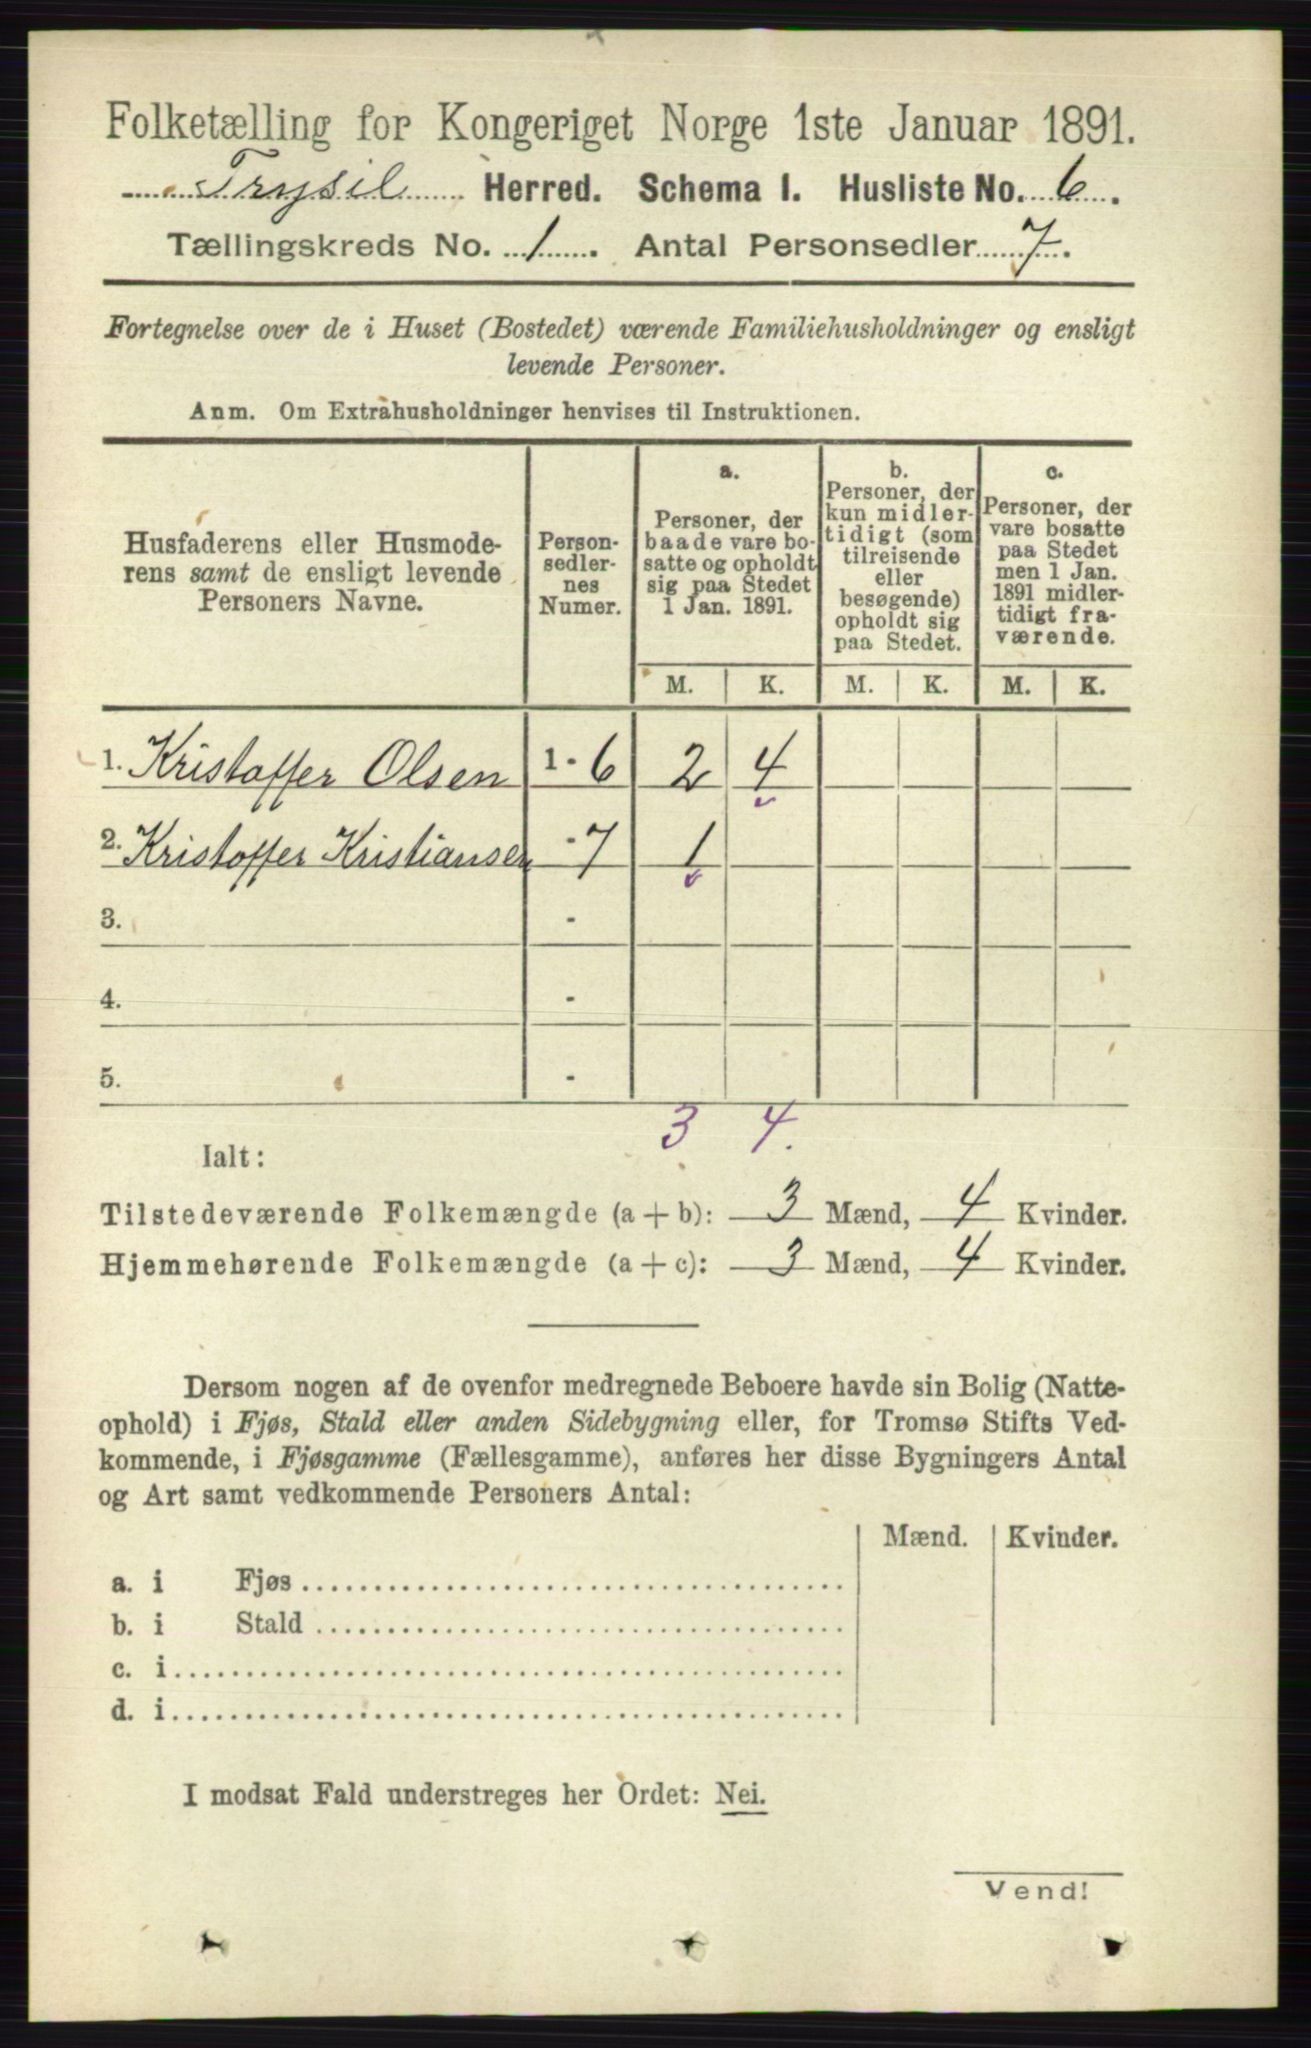 Folketælling for Kongeriget Norge 1ste Januar 1891.
Trysil Herred. Schema I. Husliste No. 6.
Tællingskreds No. 1. Antal Personsedler 7.
Fortegnelse over de i Huset (Bostedet) værende Familiehusholdninger og ensligt
levende Personer.
Anm. Om Extrahusholdninger henvises til Instruktionen.
Husfaderens eller Husmode-
rens samt de ensligt levende
Personers Navne.
Person-
sedler-
nes
Numer.
a.
Personer, der
baade vare bo-
satte og opholdt
sig paa Stedet
1 Jan. 1891.
b.
Personer, der
kun midler-
tidigt (som
tilreisende
eller
besøgende)
opholdt sig
paa Stedet.
c.
Personer, der
vare bosatte
paa Stedet
men 1 Jan.
1891 midler-
tidigt fra-
værende.
M. K. M. K. M. K.
1. Kristoffer Olsen 1 - 6 2 4
2. Kristoffer Kristiansen - 7 1
3. -
4. -
5. -
3 4.
Ialt:
Tilstedeværende Folkemængde (a + b): 3 Mænd, 4 Kvinder.
Hjemmehørende Folkemængde (a + c): 3 Mænd, 4 Kvinder.
Dersom nogen af de ovenfor medregnede Beboere havde sin Bolig (Natte-
ophold) i Fjøs, Stald eller anden Sidebygning eller, for Tromsø Stifts Ved-
kommende, i Fjøsgamme (Fællesgamme), anføres her disse Bygningers Antal
og Art samt vedkommende Personers Antal:
Mænd. Kvinder.
a. i Fjøs
b. i Stald
c. i
d. i
I modsat Fald understreges her Ordet: Nei.
Vend!